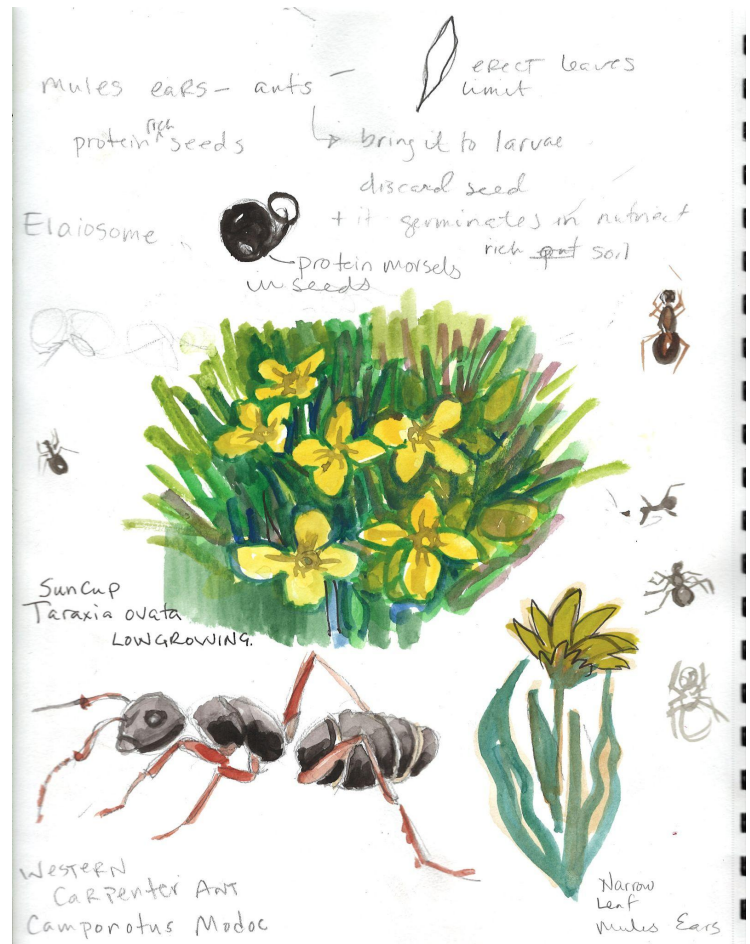 mules ears - ants -
erect leaves
limit
protein rich seeds
bring it to larvae
discard seed
+ it germinates in nutrient
rich soil
Elaiosome
protein morsels
in seeds
Suncup
Taraxia ovata
LOWGROWING.
WESTERN
CARPENTER ANT
Camponotus Modoc
Narrow
Leaf
mules Ears